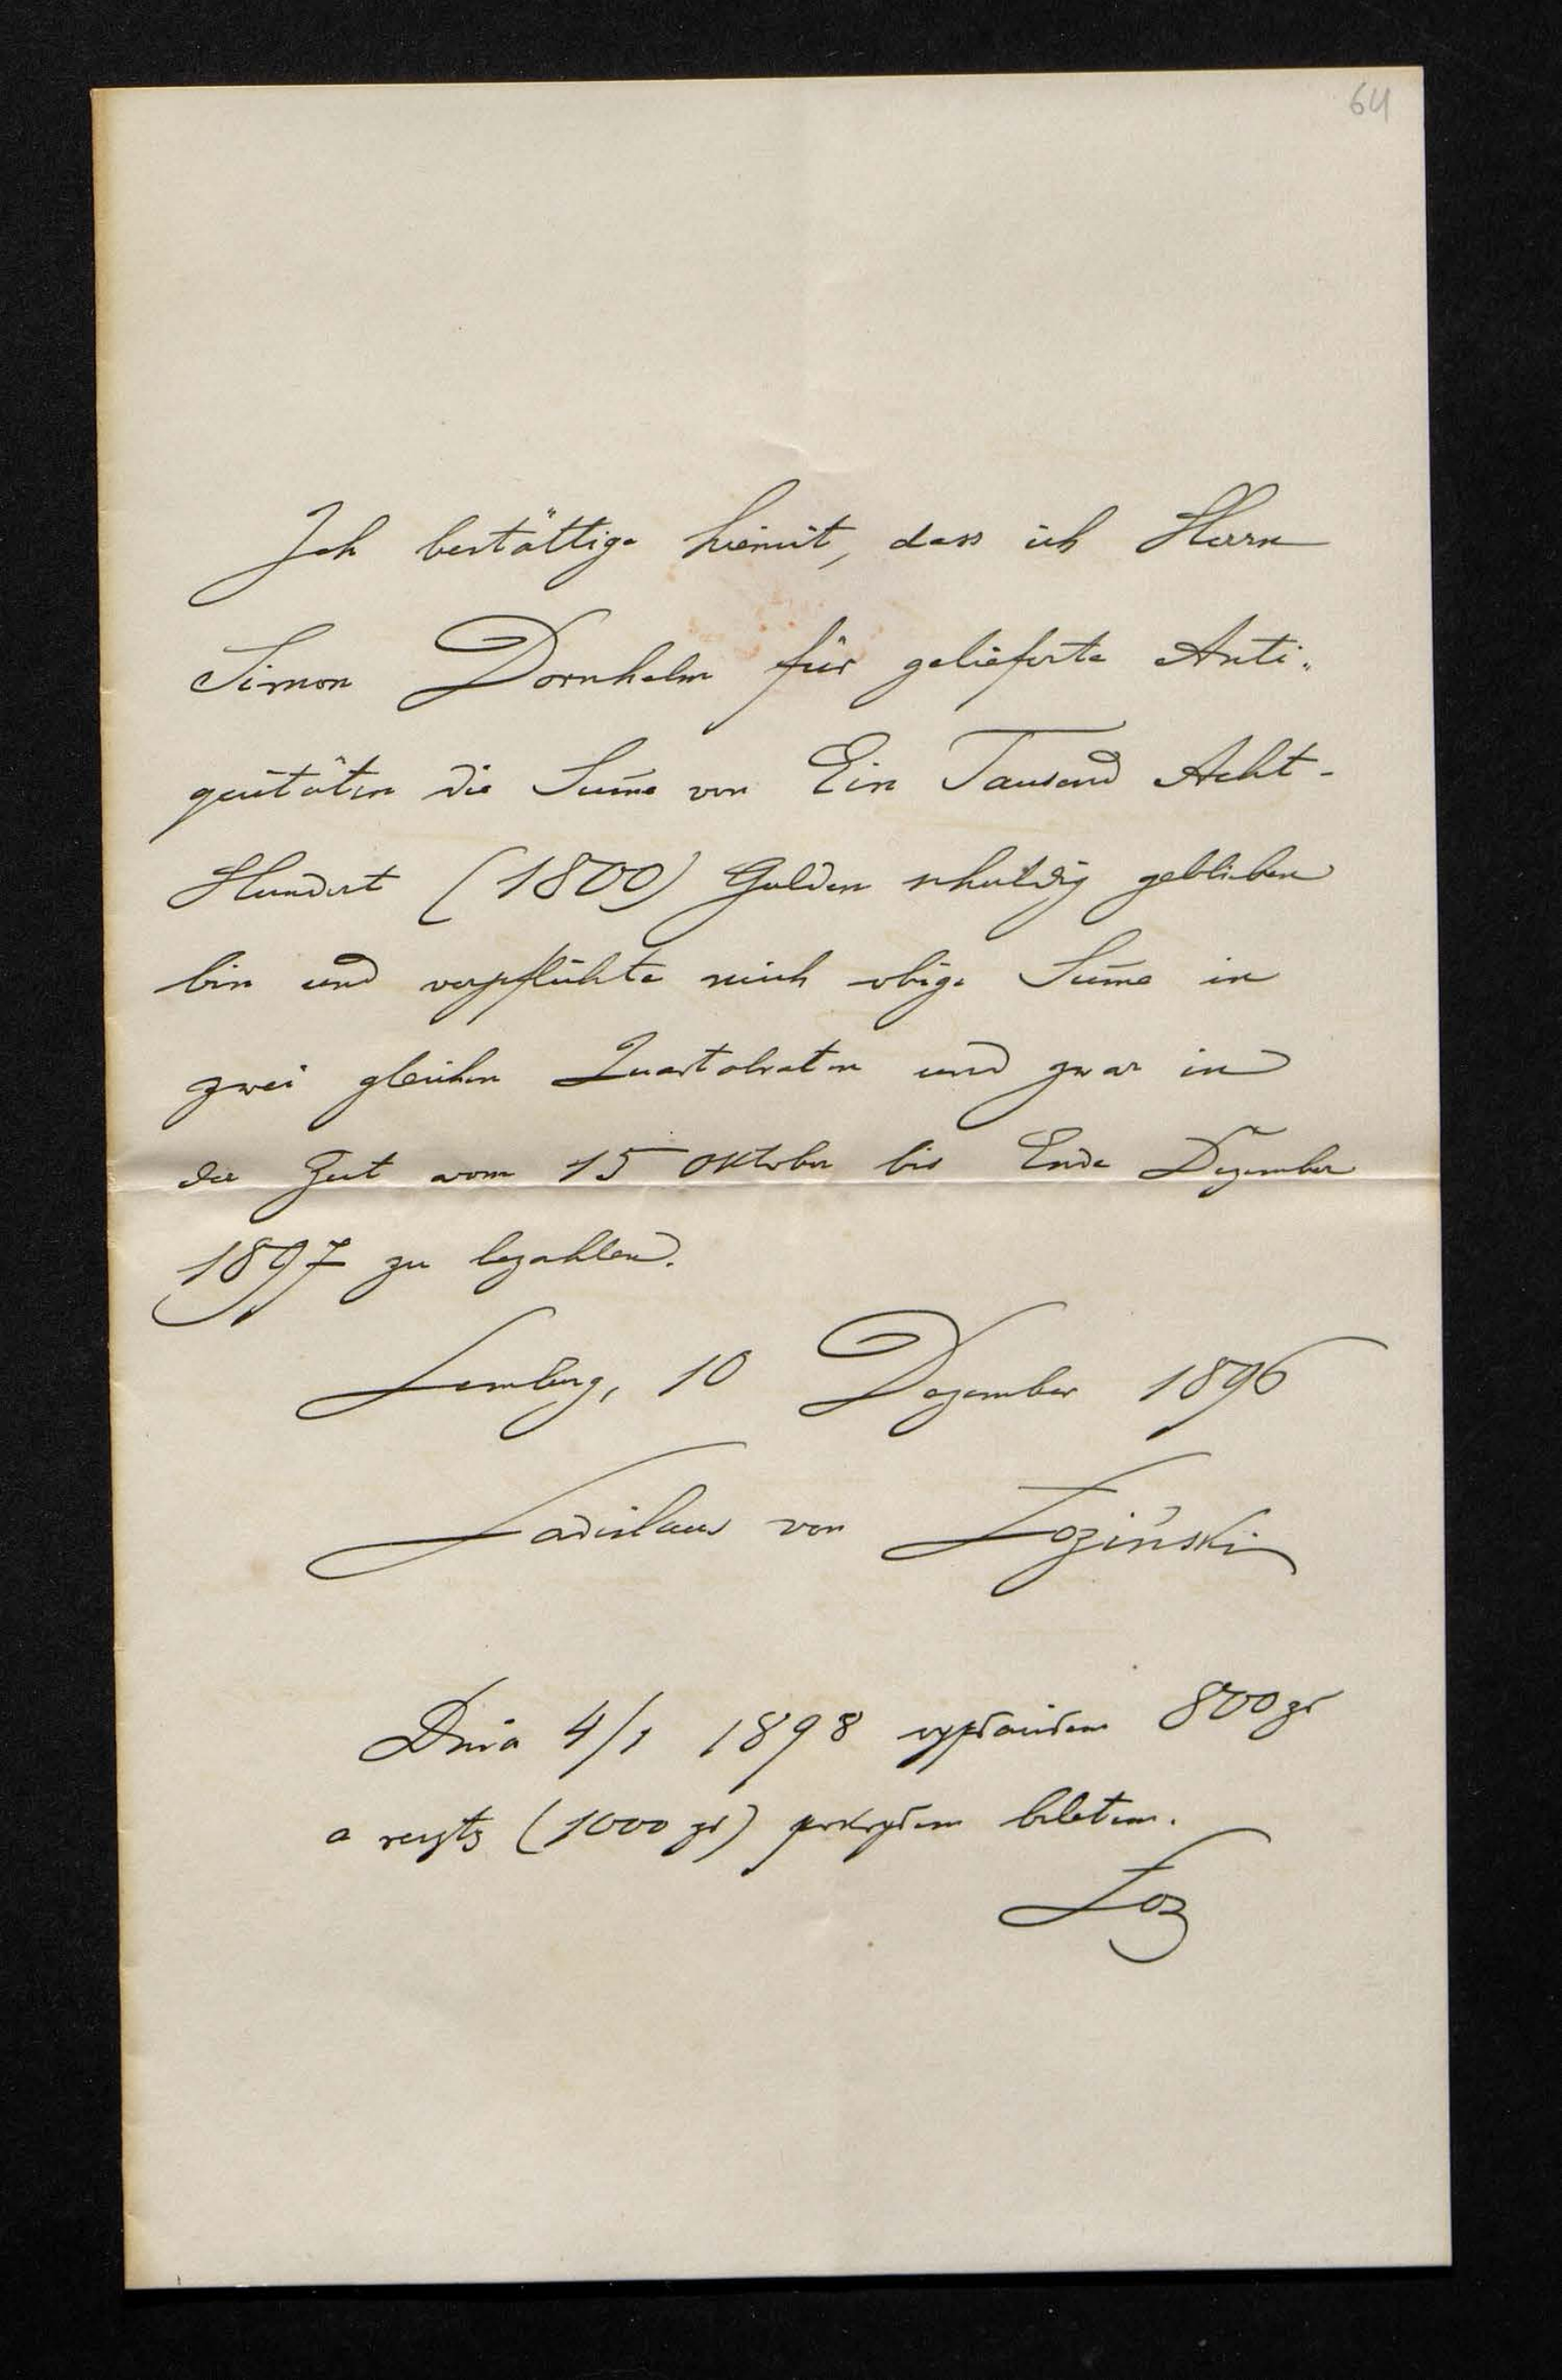 64
Ich bestättige hiemit, dass ich Herrn
Simon Dornhelm für gelieferte Anti-
quitäten die Sum̄e von Ein Tausend Acht-
Hundert (1800) Gulden schuldig geblieben
bin und verpflichte mich obige Sum̄e in
zwei gleichen Quartalraten und zwar in
der Zeit vom 15 Oktober bis Ende Dezember
1897 zu bezahlen.
Lemberg, 10 Dezember 1896
Ladislaus von Łoziński
Dnia 4/1 1898 wypłaciłem 800 zł
a resztę (1000 zł) pokryłem biletem.
Łoz